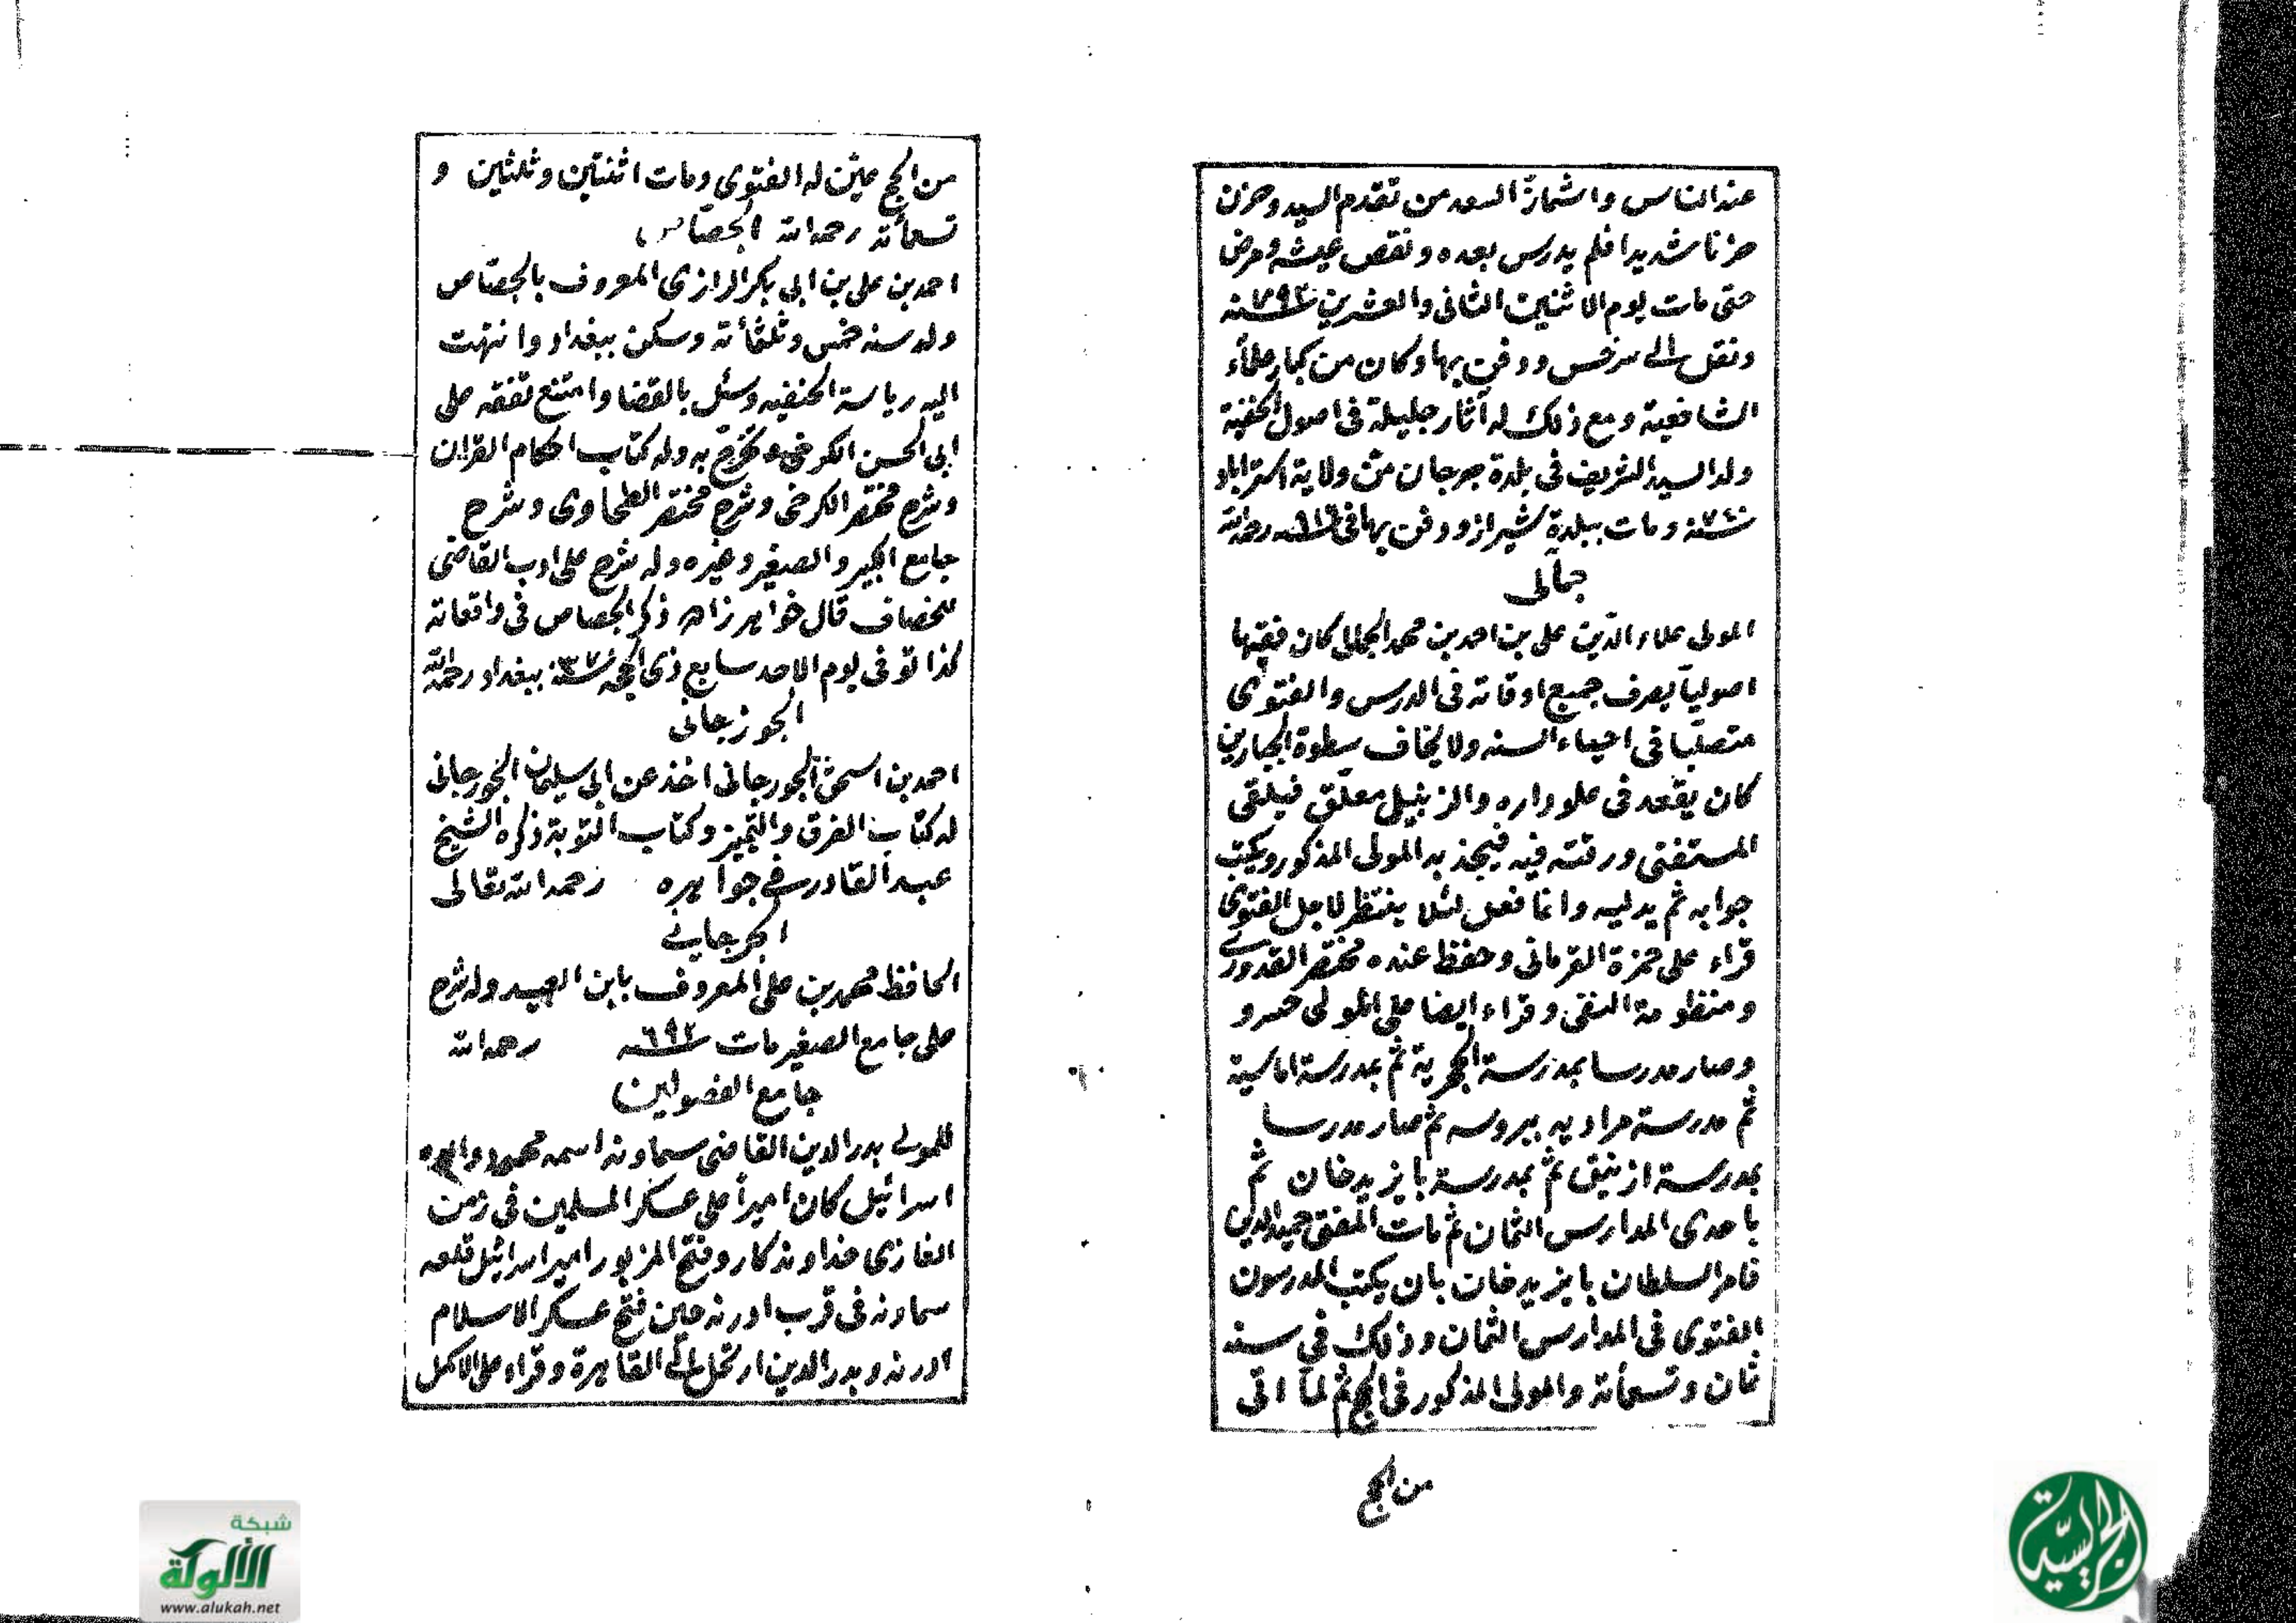 عند الناس واشمأز السعد من تقدم السيد وحزن
حزنا شديدا فلم يدرس بعده ونقص عيشه ومرض
حتى مات يوم الاثنين الثانى والعشرين سنه ٧٩٢
ونقل الى سرخس ودفن بها وكان من كبار علماء
الشافعية ومع ذلك له آثار جليلة فى اصول الحنفية
ولد السيد الشريف فى بلدة جرجان من ولاية استراباد
سنة ٧٤٠ ومات ببلدة شيراز ودفن بها فى سنه ٨١٦ رحمه الله
جمالى
المولى علاء الدين على بن احمد بن محمد الجمالى كان فقيها
اصوليا يصرف جميع اوقاته فى الدرس والفتوى
متصلبا فى احياء السنه ولا يخاف سطوة الجبارين
كان يقعد فى علو داره والزنبيل معلق فيلقى
المستفتى ورقته فيه فيجذبه المولى المذكور ويكتب
جوابه ثم يدليه وانما فعل لئلا ينتظر لاجل الفتوى
قراء على حمزة القرمانى وحفظ عنده مختصر القدورى
ومنظومة النسفى وقراء ايضا على المولى خسرو
وصار مدرسا بمدرسة الحجرية ثم بمدرسة اماسية
ثم مدرسة مراديه ببروسه ثم صار مدرسا
بمدرسة ازنيق ثم بمدرسة بايزيد خان ثم
باحدى المدارس الثمان ثم مات المفتى حميد الدين
فامر السلطان بايزيد خان بان يكتب المدرسون
الفتوى فى المدارس الثمان وذلك فى سنه
ثمان وتسعمأئة والمولى المذكور فى الحج ثم لما اتى
من الحج
من الحج عين له الفتوى ومات اثنتين وثلثين و
تسعمأئة رحمه الله الجصاص
احمد بن على بن ابى بكر الرازى المعروف بالجصاص
ولد سنه خمس وثلثمأئة وسكن ببغداد وانتهت
اليه رياسة الحنفيه وسئل بالقضا وامتنع تفقه على
ابى الحسن الكرخى وتخرج به وله كتاب احكام القران
وشرح مختصر الكرخى وشرح مختصر الطحاوى وشرح
جامع الكبير والصغير وغيره وله شرح على ادب القاضى
للخصاف قال خواهر زاده ذكر الجصاص فى واقعاته
كذا توفى يوم الاحد سابع ذى الحجه سنة ٣٧٠ ببغداد رحمه الله
الجوزجانى
احمد بن اسحق الجورجانى اخذ عن ابى سليمان الجورجانى
له كتاب الفرق والتميز وكتاب التوبة ذكره الشيخ
عبد القادر فى جواهره رحمه الله تعالى
الجرجانى
الحافظ محمد بن على المعروف بابن العبيد وله شرح
على جامع الصغير مات سنه ٦٩٢ رحمه الله
جامع الفصولين
للمولى بدر الدين القاضى سماونه اسمه محمود والده
اسرائيل كان اميرا على عسكر المسلمين فى زمن
الغازى خداوندكار وفتح المزبور امير اسرائيل قلعه
سماونه فى قرب ادرنه حين فتح عسكر الاسلام
ادرنه وبدر الدين ارتحل الى القاهرة وقراء على الاكمل
شبكة
الألوكة
www.alukah.net